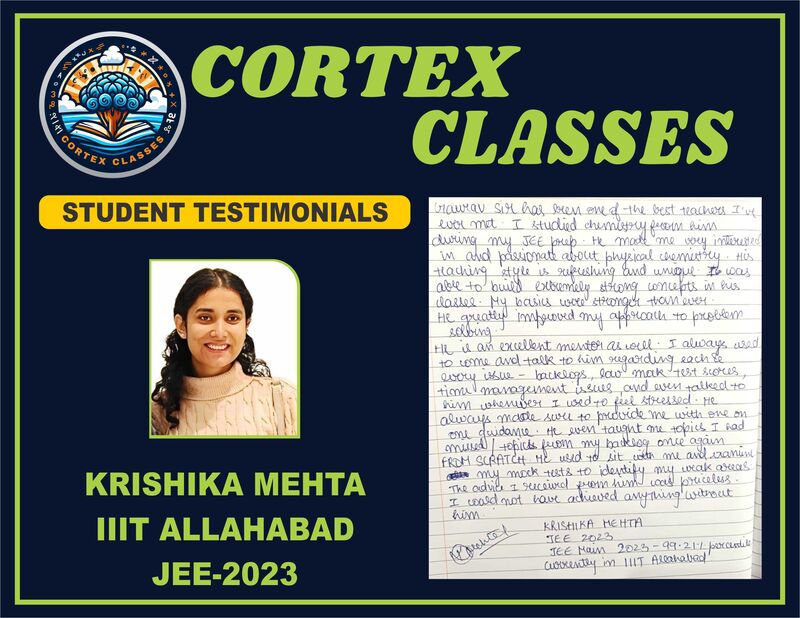 CORTEX
CLASSES
CORTEX CLASSES
STUDENT TESTIMONIALS
KRISHIKA MEHTA
IIIT ALLAHABAD
JEE-2023
Gaurav Sir has been one of the best teachers I've
ever met. I studied chemistry from him
during my JEE prep. He made me very interested
in and passionate about physical chemistry. His
teaching style is refreshing and unique. I was
able to build extremely strong concepts in his
classes. My basics were stronger than ever.
He greatly improved my approach to problem
solving.
He is an excellent mentor as well. I always used
to come and talk to him regarding each &
every issue - backlogs, low mock test scores,
time management issues, and even talked to
him whenever I used to feel stressed. He
always made sure to provide me with one on
one guidance. He even taught me topics I had
missed / topics from my backlog once again
FROM SCRATCH. He used to sit with me and examine
my mock tests to identify my weak areas.
The advice I received from him was priceless.
I could not have achieved anything without
him.
KRISHIKA MEHTA
JEE 2023
JEE Main 2023 - 99.21% percentile
currently in IIIT Allahabad